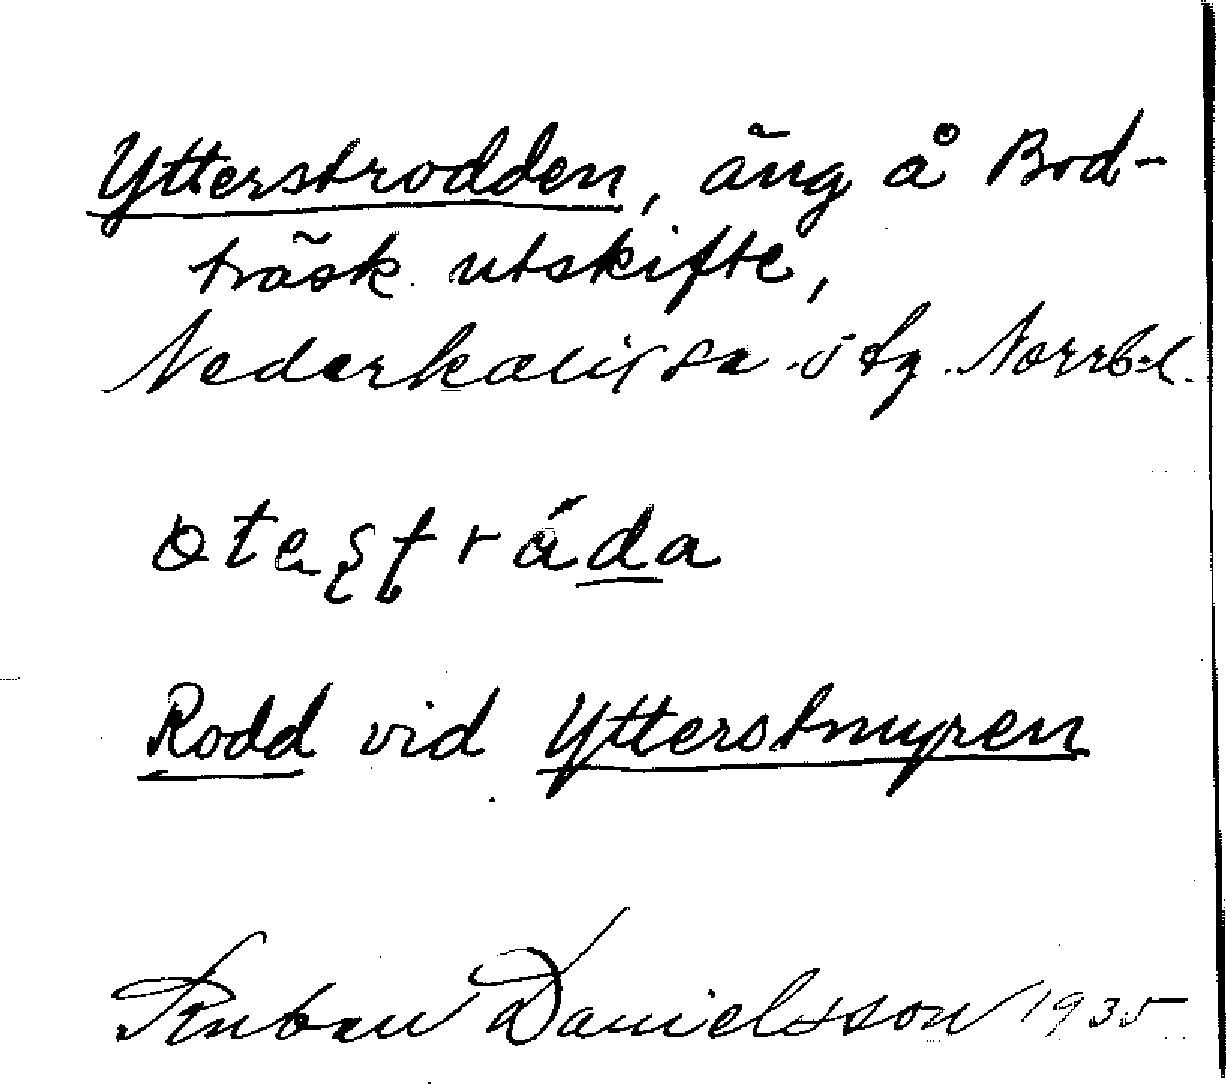 Ytterstrodden, äng å Bod-
träsk utskifte,
Nederkalix sn
Rodd vid Ytterstmyren
Ruben Danielsson 1935